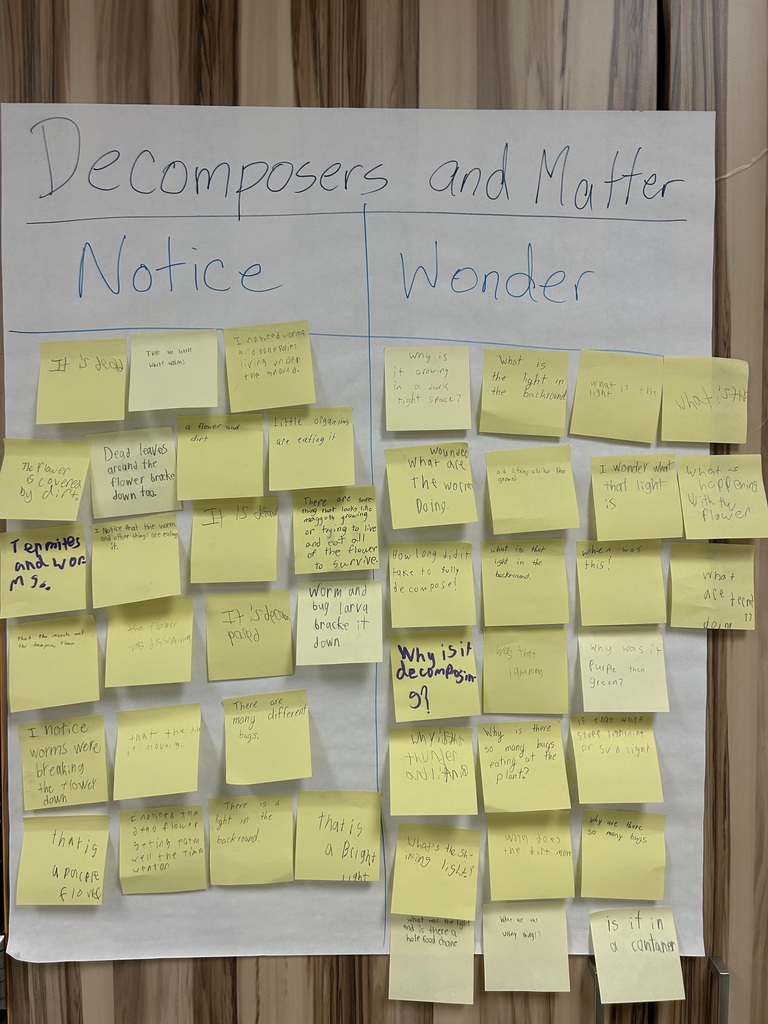 Decomposers and Matter
Notice
Wonder
It is dead
I noticed worms
and
living under
the ground.
The flower
is covered
by dirt
Dead leaves
around the
flower bracke
down too.
a flower and
dirt
Little organisms
are eating it
Termites
and wor
ms.
I Notice that the worm
and other things are eating
it.
It is
There are some
thing that looks like
maggots growing
or trying to live
and eat all
of the flower
to survive
the flower
It is
Worm and
bug larva
bracke it
down
I notice
worms were
breaking
the flower
down
that the
is moving.
There are
many different
bugs.
that is
a purple
flower
I noticed the
dead flower
getting eaten
well the time
went on
There is a
light in the
backround.
that is
a Bright
light
why is
it growing
in a dark
tight space?
What is
the light in
the backround
what is the
light
wounder
what are
the worm
Doing.
the
ground
I wonder what
that light
is
what is
happening
with the
flower
How long did it
take to fully
decompose?
what is that
light in the
backround.
when was
this!
what
are
doing
Why is it
decomposin
g?
was that
lightning
Why was it
Purple then
green?
Why is
Why is there
so many bugs
eating at the
plant?
is that
lightning
or sun light
What's the shi
ning light?
Why does
the dirt move
Why are there
so many bugs
what was the light
and is there a
hole food chane
is it in
a contaner